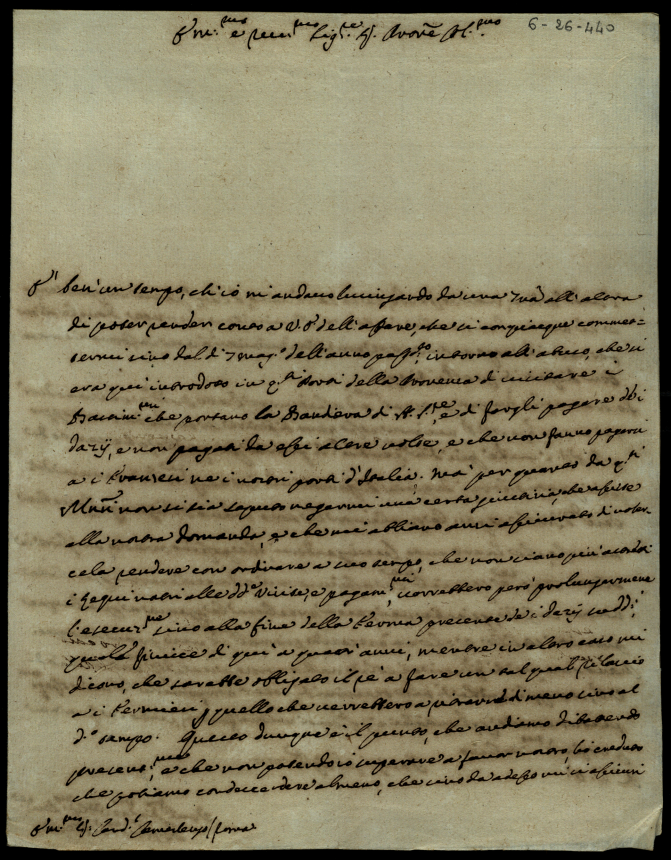 Em.mo e Rev.mo Sig.re Sig. Prone Col.mo
6-26-440
E' ben' un tempo, ch'io mi andavo lusingando da una 7na all'altra
di poter render conto a V.E. dell'affare, che si compiacque commet-
termi sino dal dì 7 mag.o dell'anno pass.to, intorno all'abuso, che si
era qui introdotto in q.sti Porti della Provenza di visitare i
Bastim.ti che portano la Bandiera di N. S.re, e di fargli pagare d'i
dazij, e non pagati da essi altre volte, e che non fanno pagarsi
a i Francesi ne i nostri porti d'Italia. Ma per quanto da q.sti
Mnri non si sia saputo negarmi una certa giustizia, che assiste
alla nostra domanda, e che mi abbiano anzi assicurato di voler-
cela rendere con ordinare a suo tempo, che non siano più astretti
i legni nostri alle dd.e visite, e pagam.ti, vorrebbero però prolungarmene
l'esecuz.ne sino alla fine della Ferma presente de i dazij sudd.i,
quale finisce di qui a quattro anni, mentre in altro caso mi
dicono, che sarebbe obligato il Rè a fare un tal qual rilascio
a i Fermieri p quello che verrebbero a ritrarre di meno sino al
d.o tempo. Questo dunque è il punto, che andiamo dibattendo
presentem.te, e che non potendo io superare a favor nostro, hò creduto
che potiamo condescendere almeno, che sino da adesso mi si assicuri
Em.mo Sig. Card.l Camerlengo / Roma